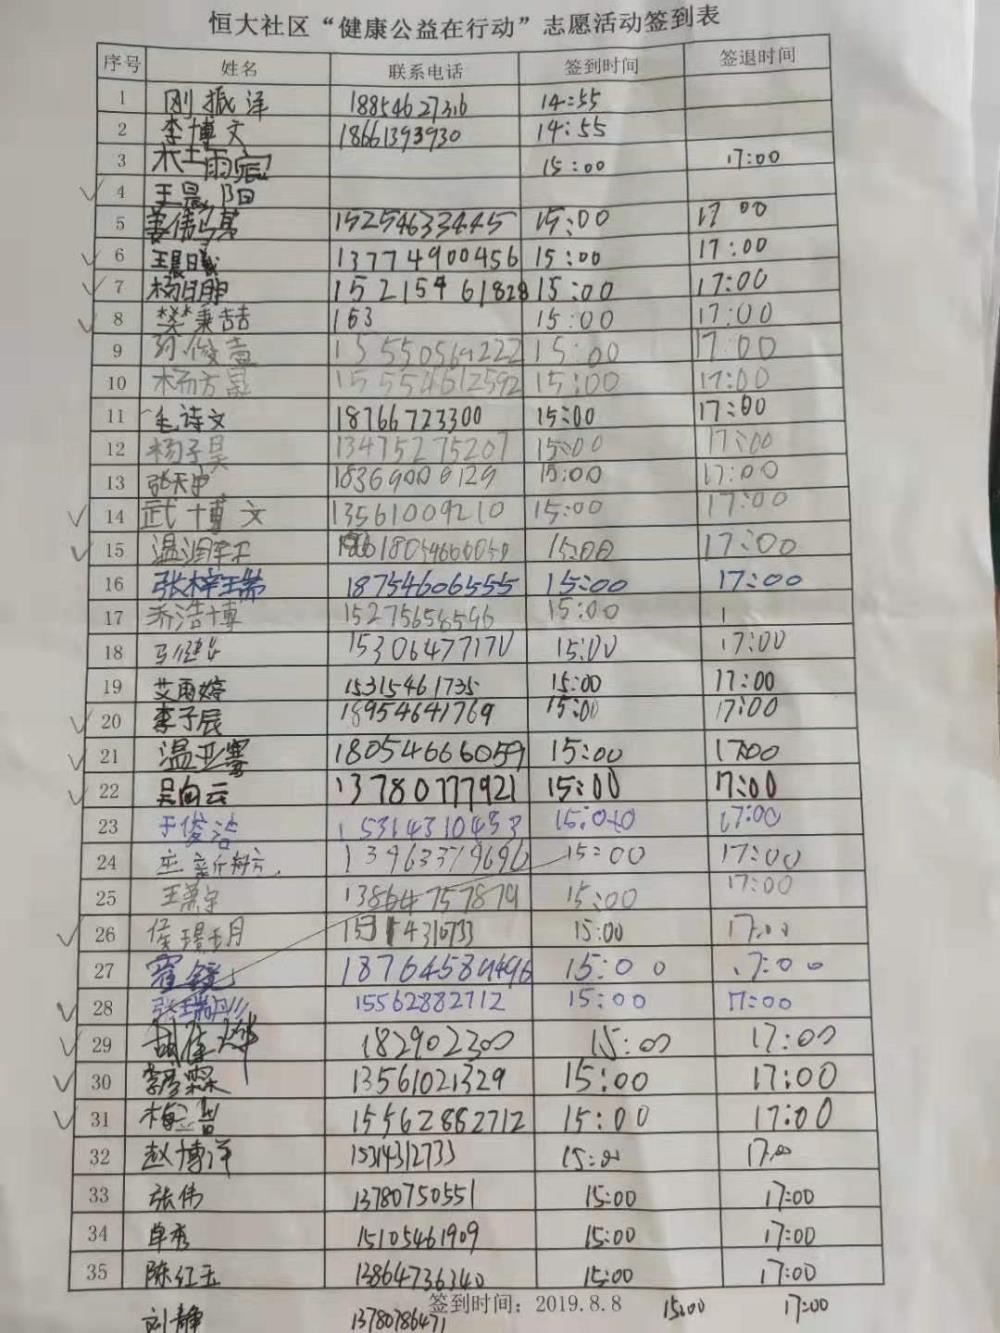 恒大社区“健康公益在行动”志愿活动签到表
序号 姓名 联系电话 签到时间 签退时间
1 刚振泽 18854627316 14:55
2 李博文 18661393930 14:55
3 15:00 17:00
4 王晨阳
5 15254633445 15:00 17 00
6 王晨曦 13774900456 15:00 17:00
7 杨日翀 15215461828 15:00 17:00
8 樊秉喆 163 15:00 17:00
9 15550564222 15:00 17:00
10 15554612592 15:00 17:00
11 毛诗文 18766723300 15:00 17:00
12 杨子昊 13475275207 15:00 17:00
13 15:00 17:00
14 武博文 13561009210 15:00 17:00
15 15:00 17:00
16 张梓瑞 18754606555 15:00 17:00
17 乔浩博 15275656596 15:00
18 15306477170 15:00 17:00
19 艾雨婷 15315461735 15:00 17:00
20 李子辰 18954641769 15:00 17:00
21 温亚骞 18054666059 15:00 17:00
22 吴向云 13780777921 15:00 17:00
23 于俊浩 15314310433 17:00
24 13963379696 15:00 17:00
25 13864757879 15:00 17:00
26 15:00 17:00
27 15:00 17:00
28 15562882712 15:00 17:00
29 182902300 15:00 17:00
30 13561021329 15:00 17:00
31 15562882712 15:00 17:00
32 赵博洋 15314312733 15:00 17:00
33 张伟 13780750551 15:00 17:00
34 卓秀 15105461909 15:00 17:00
35 陈红玉 13864736340 15:00 17:00
签到时间：2019.8.8
刘静 13780786471 15:00 17:00